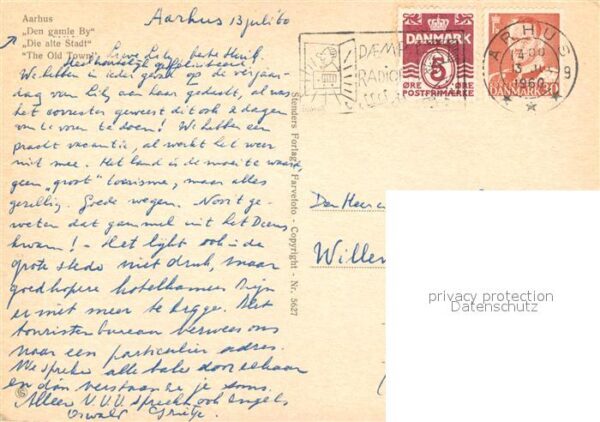 Aarhus
"Den gamle By"
"Die alte Stadt"
"The Old Town"
Aarhus 13 juli '60
Lieve Lily, beste Henk,
Wel hartelijk gefeliciteerd.
We hebben in ieder geval op de verjaar-
dag van Lily aan haar gedacht, al was
het eerste geweest dit ook 2 dagen
van te voren te doen! We hebben een
pracht vacantie, al werkt het weer
niet mee. Het land is de moeite waard,
geen "groot" toerisme, maar alles
gezellig. Goede wegen. Nooit ge-
weten dat gammel uit het Deens
kwam! - Het lijkt ook in de
grote steden niet druk, maar
goedkopere hotelkamers zijn
er niet meer te krijgen. Het
touristenbureau verwees ons
naar een particulier adres.
We spreken alle talen door elkaar
en dan verstaan ze je soms.
Alleen V.V.V. spreekt ook engels
Oswald Grietje.
Stenders Forlag - Farvefoto - Copyright - Nr. 5627
DÆMP
RADIO
DANMARK
5
ØRE ØRE
POSTFRIMÆRKE
DANMARK
ARHUS
1960
9
Den Heer en
Willem
privacy protection
Datenschutz